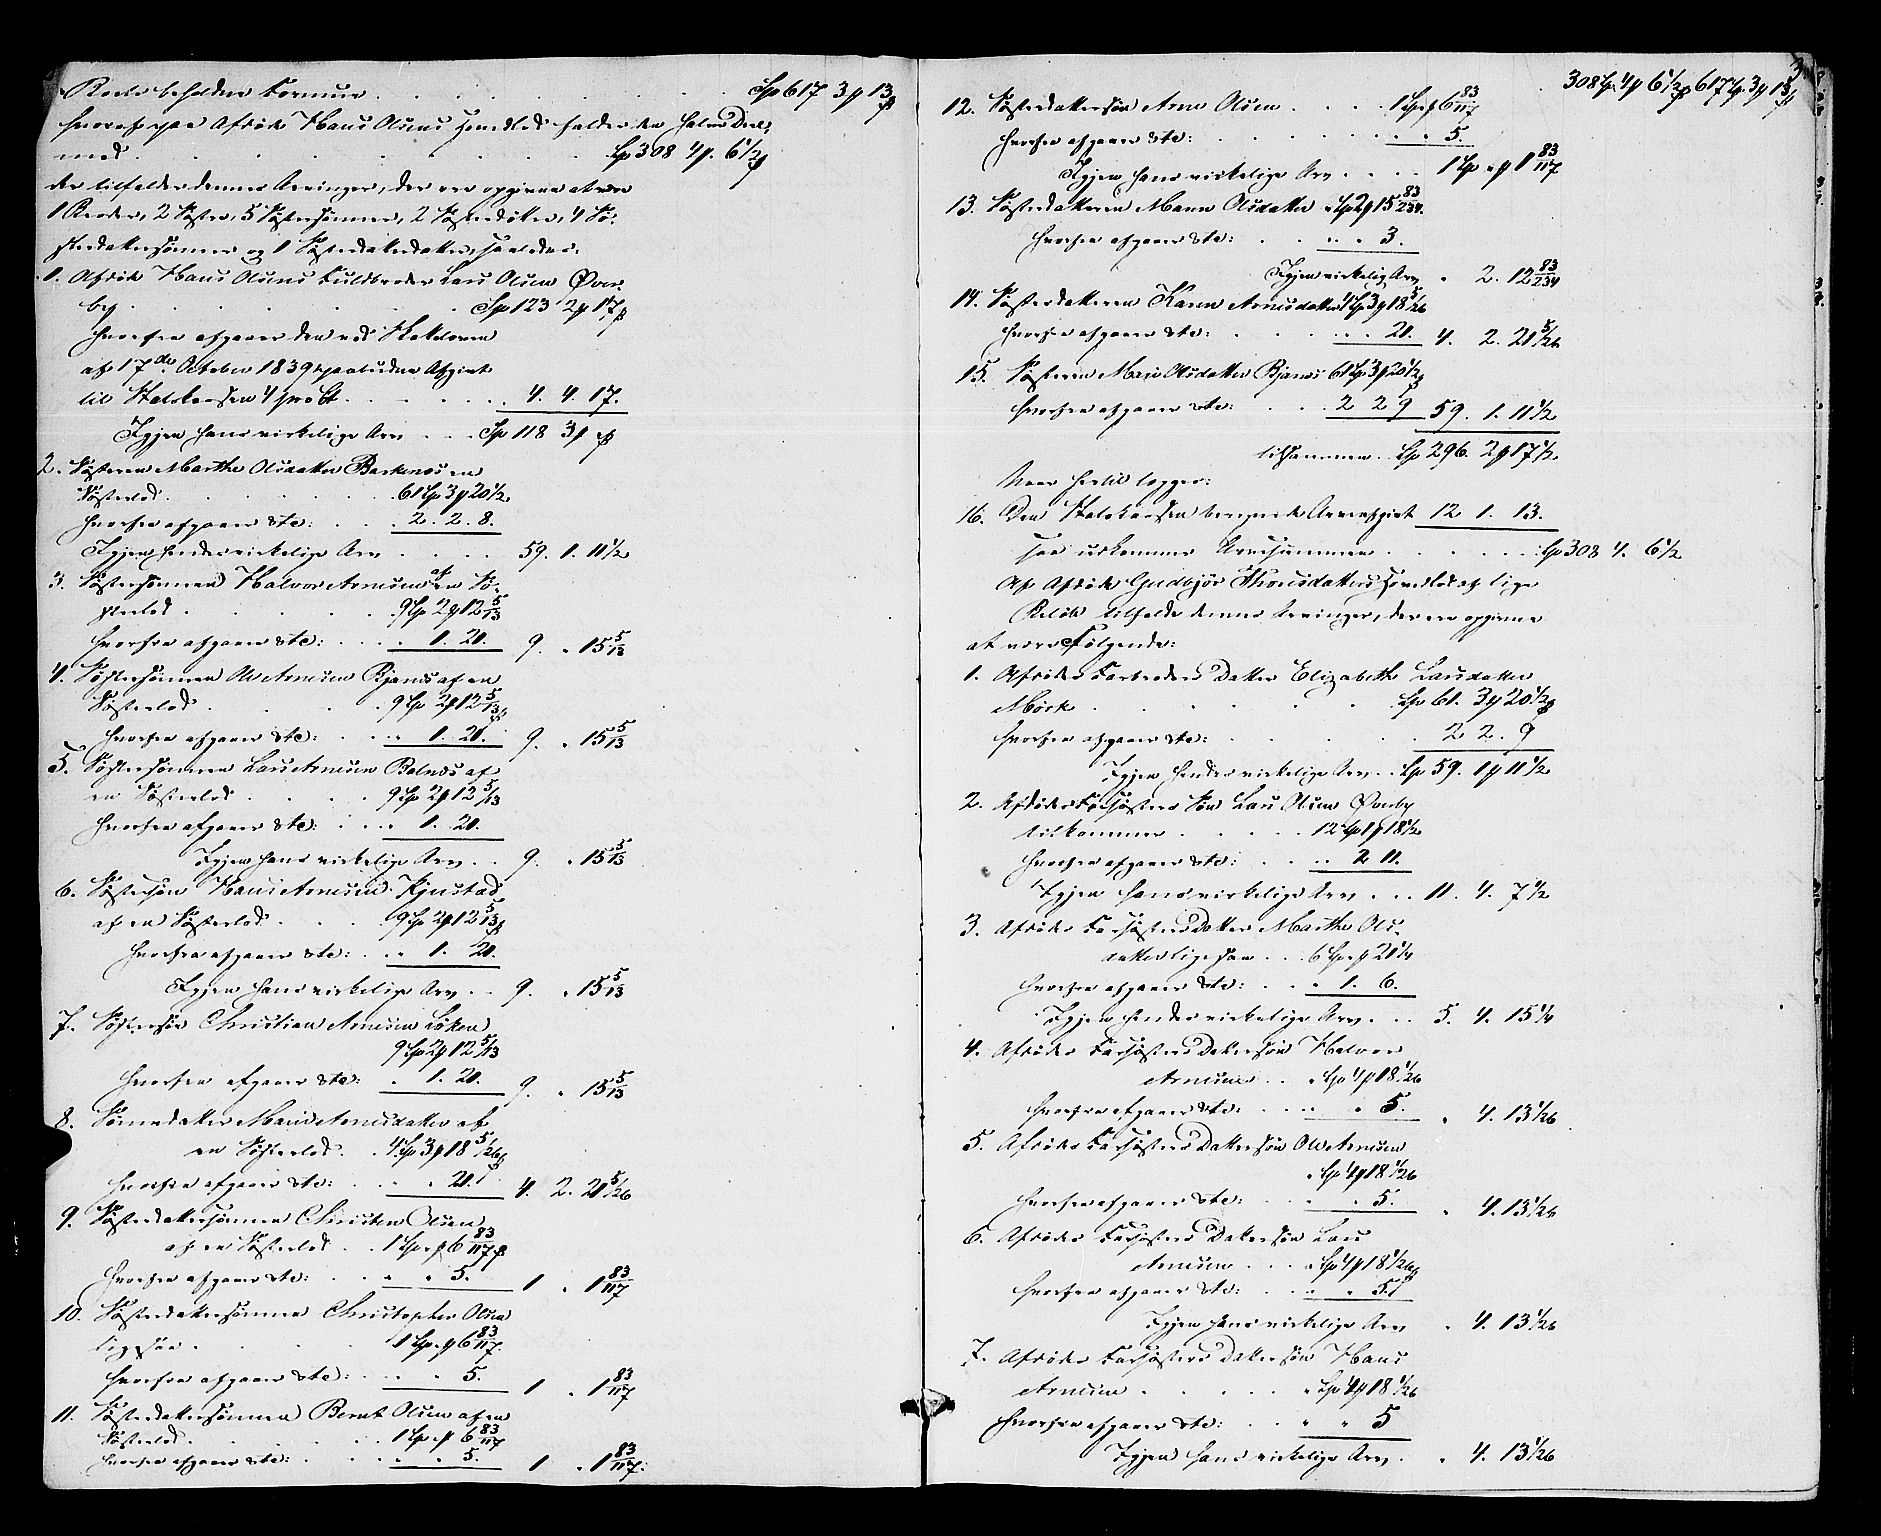 Reele beholdne Formue . . . . . . . Sp 617 3 β 13
hvoraf paa Afdøde Hans Olsens Hovedlod falder den halve Deel,
med . . . . . . . . Sp 308 4 β 6 1/2
der tilfalder dennes Arvinger, der ere opgivne at være
1 Broder, 2 Søster, 5 Søstersønner, 2 Søsterdøttre, 4 Sø-
sterdattersønner og 1 Søsterdatterdatter, saaledes:
1. Afdøde Hans Olsens Fuldbroder Lars Olsen Øver-
bye . . . . . Sp 123 2 β 17
hvorfra afgaaer den ved Skatteloven
af 17de October 1839 paabudne Afgivt
til Statskassen 4 proCt . . . . . . 4. 4. 17.
Igjen hans virkelige Arv . . . Sp 118 3 β
2. Søsteren Marthe Olsdatter Barknes en
Søsterlod . . . . . 61 Sp 3 β 20 1/2
hvorfra afgaaer &tc: . . . 2. 2. 8.
Igjen hendes virkelige Arv . . . . 59. 1. 11 1/2
3. Søstersønnen Halvor Arnesen af en Sø-
sterlod . . . . . 9 Sp 2 β 12 5/13
hvorfra afgaaer &tc: . . . " 1. 20. 9. " 15 5/13
4. Søstersønnen Ole Arnesen Bjanes af en
Søsterlod . . . . 9 Sp 2 β 12 5/13
hvorfra afgaaer &tc: . . " 1. 20. 9. " 15 5/13
5. Søstersønnen Lars Arnesen Bolnes af
en Søsterlod . . . . 9 Sp 2 β 12 5/13
hvorfra afgaaer &tc: . . . " 1. 20.
Igjen hans virkelige Arv . . 9. " 15 5/13
6. Søstersøn Hans Arnesen Kjustad
af en Søsterlod . . . 9 Sp 2 β 12 5/13
hvorfra afgaaer &tc: . . " 1. 20.
Igjen hans virkelige Arv . . 9. " 15 5/13
7. Søstersøn Christian Arnesen Løken
9 Sp 2 β 12 5/13
hvorfra afgaaer &tc: " 1. 20. 9. " 15 5/13
8. Sønnedatter Marie Arnesdatter af
en Søsterlod . . 4 Sp 3 β 18 5/26
hvorfra afgaaer &tc: . . " " 20. 4. 2. 21 5/26
9. Søsterdattersønnen Christen Olsen
af en Søsterlod . . 1 Sp " β 6 83/117
hvorfra afgaaer &tc: . . " " 5. 1 " 1 83/117
10. Søsterdattersønnen Christopher Olsen
ligesaa . . . . . 1 Sp " β 6 83/117
hvorfra afgaaer &tc: . . " " 5. 1 " 1 83/117
11. Søsterdattersønnen Bernt Olsen af en
Søsterlod . . . . . 1 Sp " β 6 83/117
hvorfra afgaaer &tc: . . . " " 5. 1 " 1 83/117.
3
308 Sp 4 β 6 1/2 617 Sp 3 β 13
12. Søsterdattersøn Arne Olsen . . . . 1 Sp " β 6 83/117
hvorfra afgaaer &tc: . . . . . . " 5.
Igjen hans virkelige Arv . . . . 1 Sp " β 1 83/117
13. Søsterdatteren Maren Olsdatter " Sp 2 β 15 83/234.
hvorfra afgaaer &tc: . . " " 3.
Igjen virkelig Arv " 2. 12 83/234
14. Søsterdatteren Karen Arnesdatter 4 Sp 3 β 18 5/26
hvorfra afgaaer &tc: . . . . . 20. 4. 2. 21 5/26
15. Søsteren Mari Olsdatter Bjanes 61 Sp 3 β 20 1/2
hvorfra afgaaer &tc: . . . 2 2 9 59. 1. 11 1/2
tilsammen . . Sp 296. 2 β 17 1/2
Naar hertil lægges:
16. Den Statskassen beregnede Arveafgivt 12 1. 13.
saa udkommer Arvesummen . . . . . . Sp 308 4. 6 1/2
Af Afdøde Gudbjør Thorsdatters Hovedlod af lige
Beløb tilfalde dennes Arvinger, der ere opgivne
at være Følgende:
1. Afdødes Farbroders Datter Elizabeth Larsdatter
Mørk . . . . . . . Sp 61. 3 β 20 1/2
hvorfra afgaaer &tc: . . . . . 2 2. 9
Igjen hendes virkelige Arv . . Sp 59. 1 β 11 1/2
2. Afdødes Farsøsters Søn Lars Olsen Øverby
tilkommer . . . . . 12 Sp 1 β 18 1/2
hvorfra afgaaer &tc: . . . " 2 11.
Igjen hans virkelige Arv . . . 11. 4. 7 1/2
3. Afdødes Farsøsters Datter Marthe Ols-
datter ligesaa . . . 6 Sp " β 21 1/4
hvorfra afgaaer &tc: . . " 1. 6.
Igjen hendes virkelige Arv . . . 5. 4. 15 1/4
4. Afdødes Farsøsters Dattersøn Halvor
Arnesen . . " Sp 4 β 18 1/26
hvorfra afgaaer &tc: . . . " " 5. " 4. 13 1/26
5. Afdødes Farsøsters Dattersøn Ole Arnesen
" Sp 4 β 18 1/26
hvorfra afgaaer &tc: . . " " 5. " 4. 13 1/26
6. Afdødes Farsøsters Dattersøn Lars
Arnesen . . . " Sp 4 β 18 1/26
hvorfra afgaaer &tc: . . . " " 5.
Igjen hans virkelige Arv " 4. 13 1/26
7. Afdødes Farsøsters Dattersøn Hans
Arnesen . . . . . . " Sp 4 β 18 1/26
hvorfra afgaaer &tc: . . " " 5
Igjen hans virkelige Arv . " 4. 13 1/26